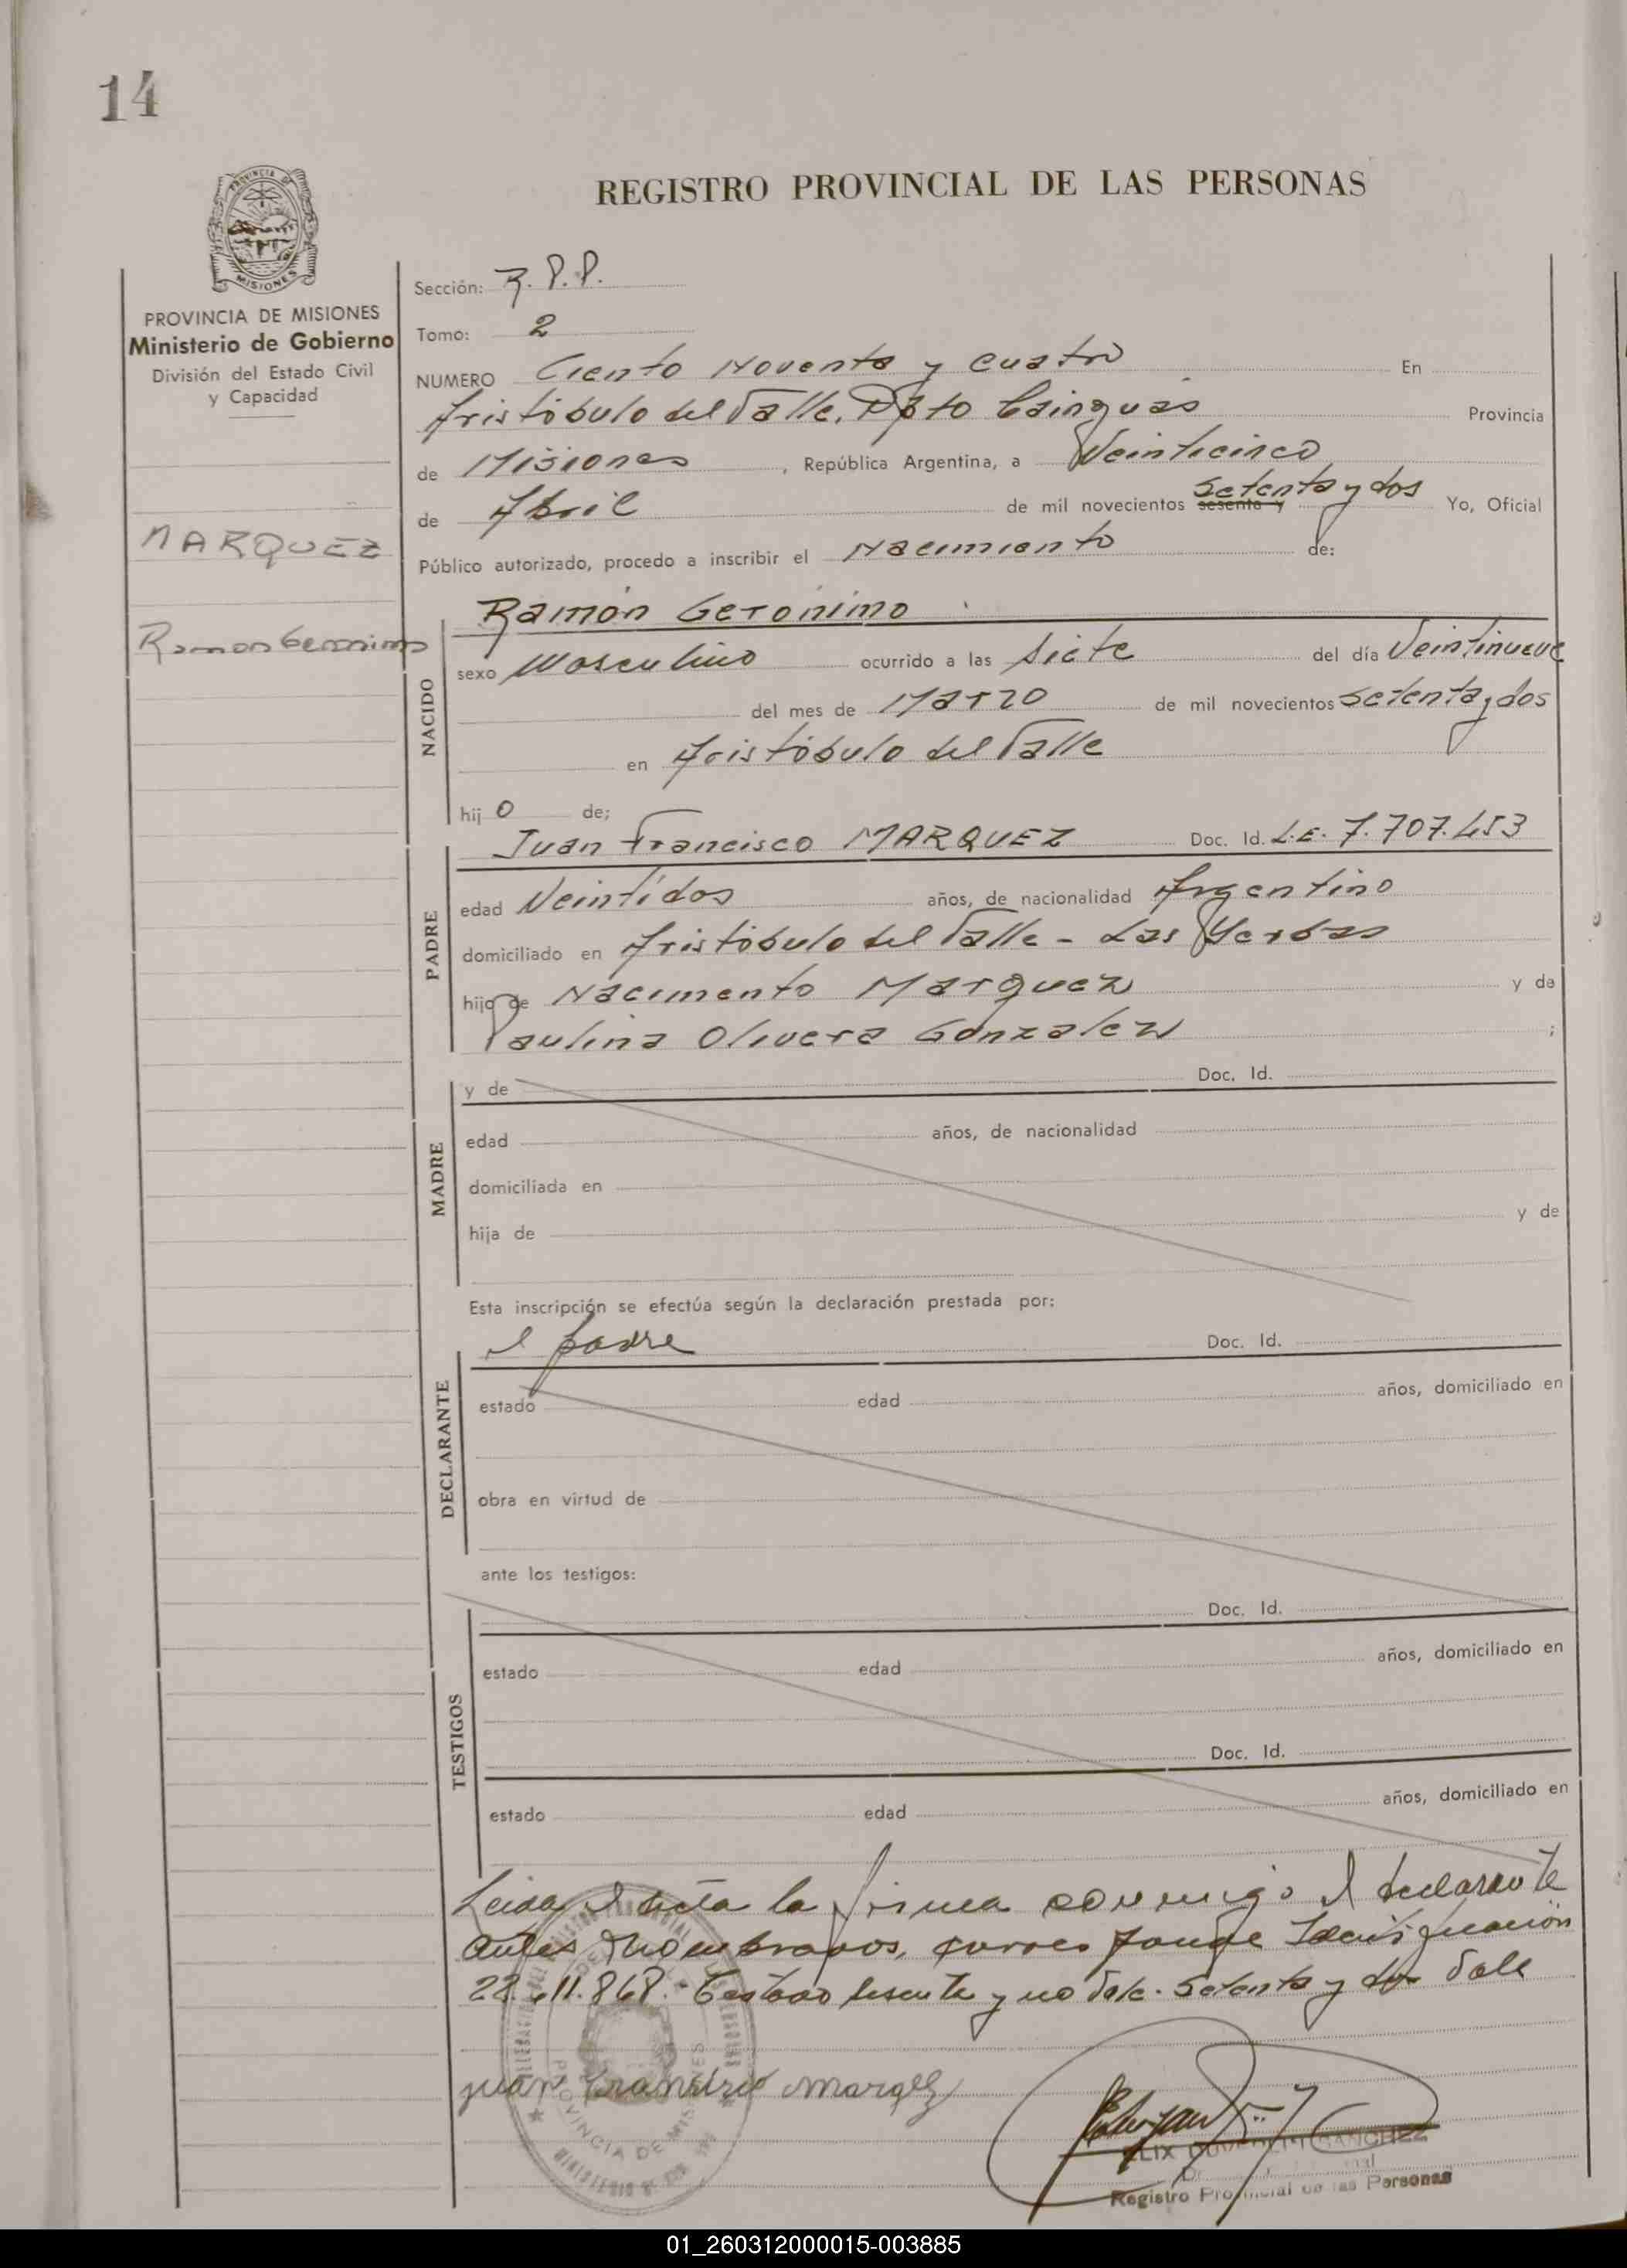 14
REGISTRO PROVINCIAL DE LAS PERSONAS
PROVINCIA DE MISIONES
MISIONES
PROVINCIA DE MISIONES
Ministerio de Gobierno
División del Estado Civil
y Capacidad
MARQUEZ
Ramon Geronimo
Sección: R.P.P.
Tomo: 2
NUMERO Ciento Noventa y cuatro En
Aristóbulo del Valle. Dpto Cainguás Provincia
de Misiones, República Argentina, a Veinticinco
de Abril de mil novecientos sesenta y Setenta y dos Yo, Oficial
Público autorizado, procedo a inscribir el Nacimiento de:
NACIDO
Ramón Gerónimo
sexo Masculino ocurrido a las Siete del día Veintinueve
del mes de Marzo de mil novecientos Setenta y dos
en Aristóbulo del Valle
hijo de;
PADRE
Juan Francisco MARQUEZ Doc. Id. L.E. 7.707.453
edad Veintidos años, de nacionalidad Argentino
domiciliado en Aristóbulo del Valle - Las Yerbas
hijo de Nacimento Marquez y de
Paulina Olivera Gonzalez ;
MADRE
y de Doc. Id.
edad años, de nacionalidad
domiciliada en
hija de y de
Esta inscripción se efectúa según la declaración prestada por:
el padre Doc. Id.
DECLARANTE
estado edad años, domiciliado en
obra en virtud de
ante los testigos:
TESTIGOS
Doc. Id.
estado edad años, domiciliado en
Doc. Id.
estado edad años, domiciliado en
Leida el acta la firma conmigo el declarante
antes nombrados, corresponde Identificación
22.611.868.- Testado sesenta y no vale. Setenta y dos Vale
juan francisco marqez
PROVINCIA DE MISIONES
SANCHEZ
Registro Provincial de las Personas
01_260312000015-003885